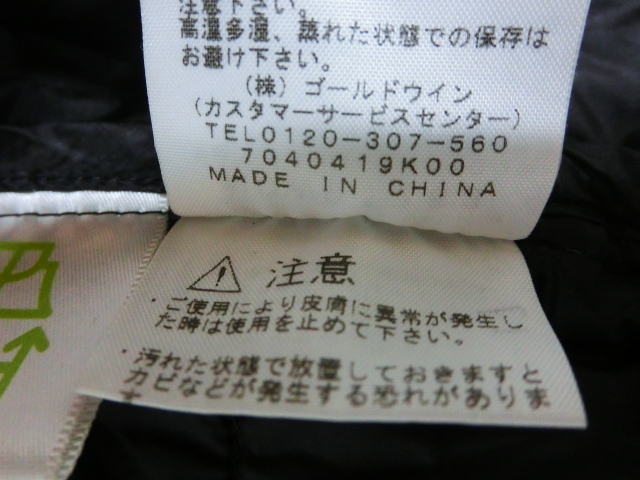 注意下さい。
高温多湿、蒸れた状態での保存は
お避け下さい。
(株)ゴールドウイン
(カスタマーサービスセンター)
TEL0120-307-560
7040419K00
MADE IN CHINA
注意
・ご使用により皮膚に異常が発生し
た時は使用を止めて下さい。
・汚れた状態で放置しておきますと
カビなどが発生する恐れがありま
す